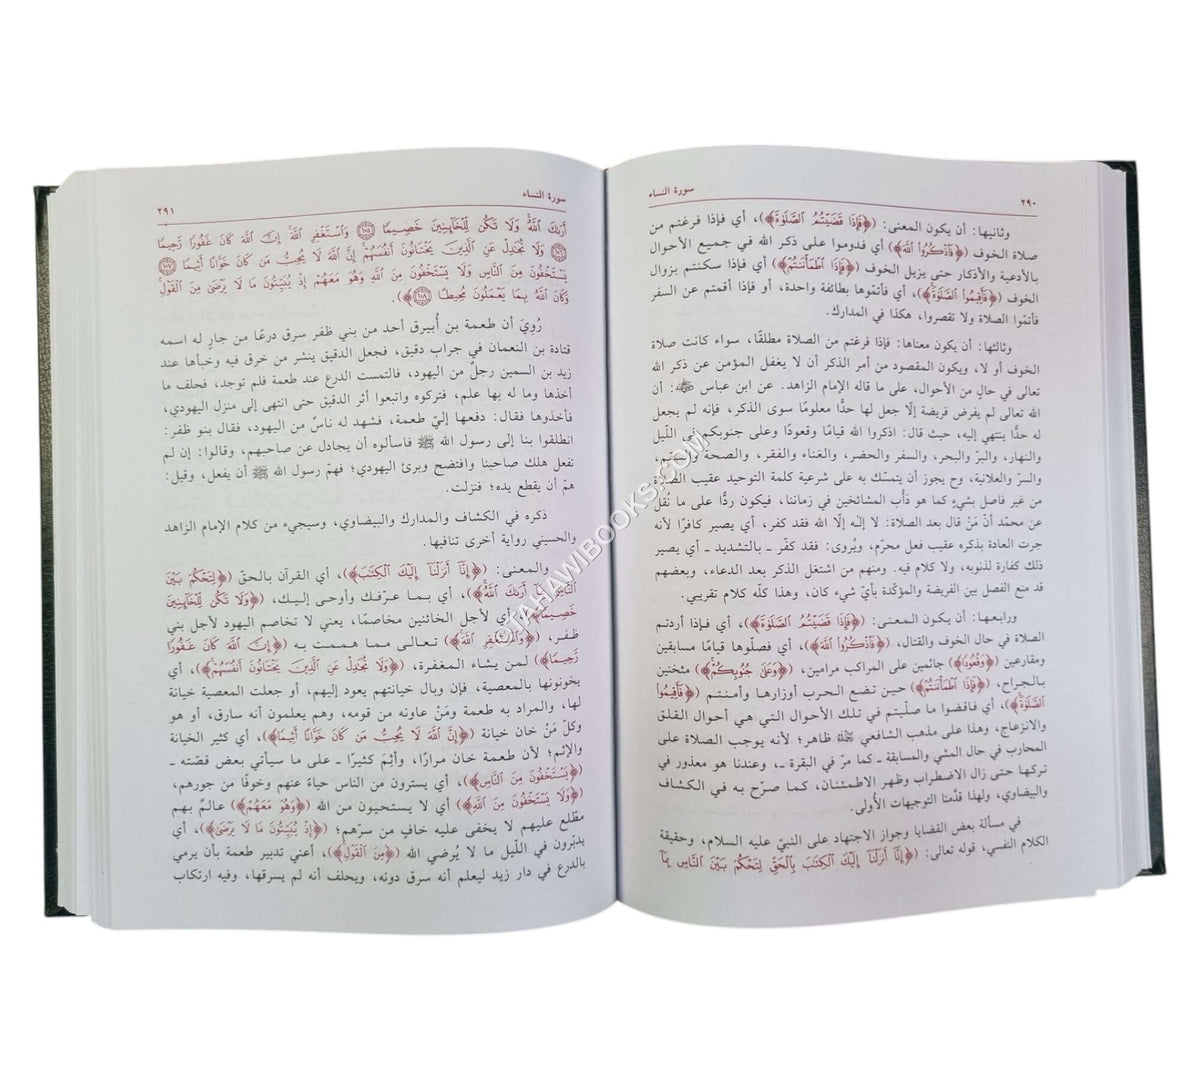 سورة النساء ٢٩٠
وثانيها: أن يكون المعنى: ﴿فَإِذَا قَضَيْتُمُ الصَّلَوٰةَ﴾، أي فإذا فرغتم من
صلاة الخوف ﴿فَاذْكُرُوا اللَّهَ﴾ أي فدوموا على ذكر الله في جميع الأحوال
بالأدعية والأذكار حتى يزيل الخوف ﴿فَإِذَا اطْمَأْنَنتُمْ﴾ أي فإذا سكنتم بزوال
الخوف ﴿فَأَقِيمُوا الصَّلَوٰةَ﴾، أي فأتمّوها بطائفة واحدة، أو فإذا أقمتم عن السفر
فأتمّوا الصلاة ولا تقصروا، هكذا في المدارك.
وثالثها: أن يكون معناها: فإذا فرغتم من الصلاة مطلقًا، سواء كانت صلاة
الخوف أو لا، ويكون المقصود من أمر الذكر أن لا يغفل المؤمن عن ذكر الله
تعالى في حال من الأحوال، على ما قاله الإمام الزاهد. عن ابن عباس رضي الله عنهما: أن
الله تعالى لم يفرض فريضة إلّا جعل لها حدًّا معلومًا سوى الذكر، فإنه لم يجعل
له حدًّا ينتهي إليه، حيث قال: اذكروا الله قيامًا وقعودًا وعلى جنوبكم في اللّيل
والنهار، والبرّ والبحر، والسفر والحضر، والغناء والفقر، والصحة والسقم،
والسرّ والعلانية، وح يجوز أن يتمسّك به على شرعية كلمة التوحيد عقيب الصلاة
من غير فاصل بشيءٍ كما هو دَأب المشائخين في زماننا، فيكون ردًّا على ما نُقل
عن محمّد أنّ مَنْ قال بعد الصلاة: لا إلٰه إلّا الله فقد كفر، أي يصير كافرًا لأنه
جرت العادة بذكره عقيب فعل محرّم، ويُروى: فقد كفّر ـ بالتشديد ـ أي يصير
ذلك كفارة لذنوبه، ولا كلام فيه. ومنهم من اشتغل الذكر بعد الدعاء، وبعضهم
قد منع الفصل بين الفريضة والمؤكّدة بأيّ شيء كان، وهذا كلّه كلام تقريبي.
ورابعها: أن يكون المعنى: ﴿فَإِذَا قَضَيْتُمُ الصَّلَوٰةَ﴾، أي فإذا أردتم
الصلاة في حال الخوف والقتال، ﴿فَاذْكُرُوا اللَّهَ﴾، أي فصلّوها قيامًا مسابقين
ومقارعين ﴿وَقُعُودًا﴾ جاثمين على المراكب مرامين، ﴿وَعَلَىٰ جُنُوبِكُمْ﴾ مثخنين
بالجراح، ﴿فَإِذَا اطْمَأْنَنتُمْ﴾ حين تضع الحرب أوزارها وأمنتم ﴿فَأَقِيمُوا
الصَّلَوٰةَ﴾، أي فاقضوا ما صلّيتم في تلك الأحوال التي هي أحوال القلق
والانزعاج، وهذا على مذهب الشافعي ظاهر؛ لأنه يوجب الصلاة على
المحارب في حال المشي والمسابقة ـ كما مرّ في البقرة ـ، وعندنا هو معذور في
تركها حتى زال الاضطراب وظهر الاطمئنان، كما صرّح به في الكشاف
والبيضاوي، ولهذا قدَّمنا التوجيهات الأولى.
في مسألة بعض القضايا وجواز الاجتهاد على النبيّ عليه السلام، وحقيقة
الكلام النفسي، قوله تعالى: ﴿إِنَّا أَنزَلْنَا إِلَيْكَ الْكِتَابَ بِالْحَقِّ لِتَحْكُمَ بَيْنَ النَّاسِ بِمَا
سورة النساء ٢٩١
أَرَىٰكَ اللَّهُ وَلَا تَكُن لِّلْخَائِنِينَ خَصِيمًا ۝١٠٥ وَاسْتَغْفِرِ اللَّهَ إِنَّ اللَّهَ كَانَ غَفُورًا رَّحِيمًا
۝١٠٦ وَلَا تُجَادِلْ عَنِ الَّذِينَ يَخْتَانُونَ أَنفُسَهُمْ إِنَّ اللَّهَ لَا يُحِبُّ مَن كَانَ خَوَّانًا أَثِيمًا ۝١٠٧
يَسْتَخْفُونَ مِنَ النَّاسِ وَلَا يَسْتَخْفُونَ مِنَ اللَّهِ وَهُوَ مَعَهُمْ إِذْ يُبَيِّتُونَ مَا لَا يَرْضَىٰ مِنَ الْقَوْلِ
وَكَانَ اللَّهُ بِمَا يَعْمَلُونَ مُحِيطًا ۝١٠٨﴾.
رُويَ أن طعمة بن أُبيرق أحد من بني ظفر سرق درعًا من جارٍ له اسمه
قتادة بن النعمان في جراب دقيق، فجعل الدقيق ينشر من خرق فيه وخبأها عند
زيد بن السمين رجلٌ من اليهود، فالتمست الدرع عند طعمة فلم توجد، فحلف ما
أخذها وما له بها علم، فتركوه واتبعوا أثر الدقيق حتى انتهى إلى منزل اليهودي،
فأخذوها فقال: دفعها إليّ طعمة، فشهد له ناسٌ من اليهود، فقال بنو ظفر:
انطلقوا بنا إلى رسول الله ﷺ فاسألوه أن يجادل عن صاحبهم، وقالوا: إن لم
نفعل هلك صاحبنا وافتضح وبرئ اليهودي؛ فهمّ رسول الله ﷺ أن يفعل، وقيل:
همّ أن يقطع يده؛ فنزلت.
ذكره في الكشاف والمدارك والبيضاوي، وسيجيء من كلام الإمام الزاهد
والحسيني رواية أخرى تنافيها.
والمعنى: ﴿إِنَّا أَنزَلْنَا إِلَيْكَ الْكِتَابَ﴾، أي القرآن بالحقّ ﴿لِتَحْكُمَ بَيْنَ
النَّاسِ بِمَا أَرَىٰكَ اللَّهُ﴾، أي بما عرّفك وأوحى إليك، ﴿وَلَا تَكُن لِّلْخَائِنِينَ
خَصِيمًا﴾ أي لأجل الخائنين مخاصمًا، يعني لا تخاصم اليهود لأجل بني
ظفر، ﴿وَاسْتَغْفِرِ اللَّهَ﴾ تعالى مما هممت به ﴿إِنَّ اللَّهَ كَانَ غَفُورًا
رَّحِيمًا﴾ لمن يشاء المغفرة، ﴿وَلَا تُجَادِلْ عَنِ الَّذِينَ يَخْتَانُونَ أَنفُسَهُمْ﴾، أي
يخونونها بالمعصية، فإن وبال خيانتهم يعود إليهم، أو جعلت المعصية خيانة
لها، والمراد به طعمة ومَنْ عاونه من قومه، وهم يعلمون أنه سارق، أو هو
وكلّ مَنْ خان خيانة ﴿إِنَّ اللَّهَ لَا يُحِبُّ مَن كَانَ خَوَّانًا أَثِيمًا﴾، أي كثير الخيانة
والإثم؛ لأن طعمة خان مرارًا، وأثِمَ كثيرًا ـ على ما سيأتي بعض قصّته ـ
﴿يَسْتَخْفُونَ مِنَ النَّاسِ﴾، أي يسترون من الناس حياءً عنهم وخوفًا من جورهم،
﴿وَلَا يَسْتَخْفُونَ مِنَ اللَّهِ﴾ أي لا يستحيون من الله ﴿وَهُوَ مَعَهُمْ﴾ عالمٌ بهم
مطّلع عليهم لا يخفى عليه خافٍ من سرّهم؛ ﴿إِذْ يُبَيِّتُونَ مَا لَا يَرْضَىٰ﴾، أي
يدبّرون في اللّيل ما لا يُرضي الله ﴿مِنَ الْقَوْلِ﴾، أعني تدبير طعمة بأن يرمي
بالدرع في دار زيد ليعلم أنه سرق دونه، ويحلف أنه لم يسرقها، وفيه ارتكاب
TAHAWIBOOKS.COM